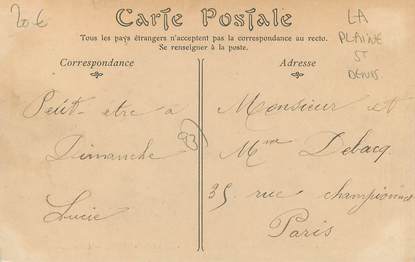 20 €
Carte Postale
LA
PLAINE
ST
DENIS
Tous les pays étrangers n'acceptent pas la correspondance au recto.
Se renseigner à la poste.
Correspondance
Adresse
Peut-etre a
Dimanche
Lucie
93
Monsieur et
Mme Debacq
35 rue championnet
Paris